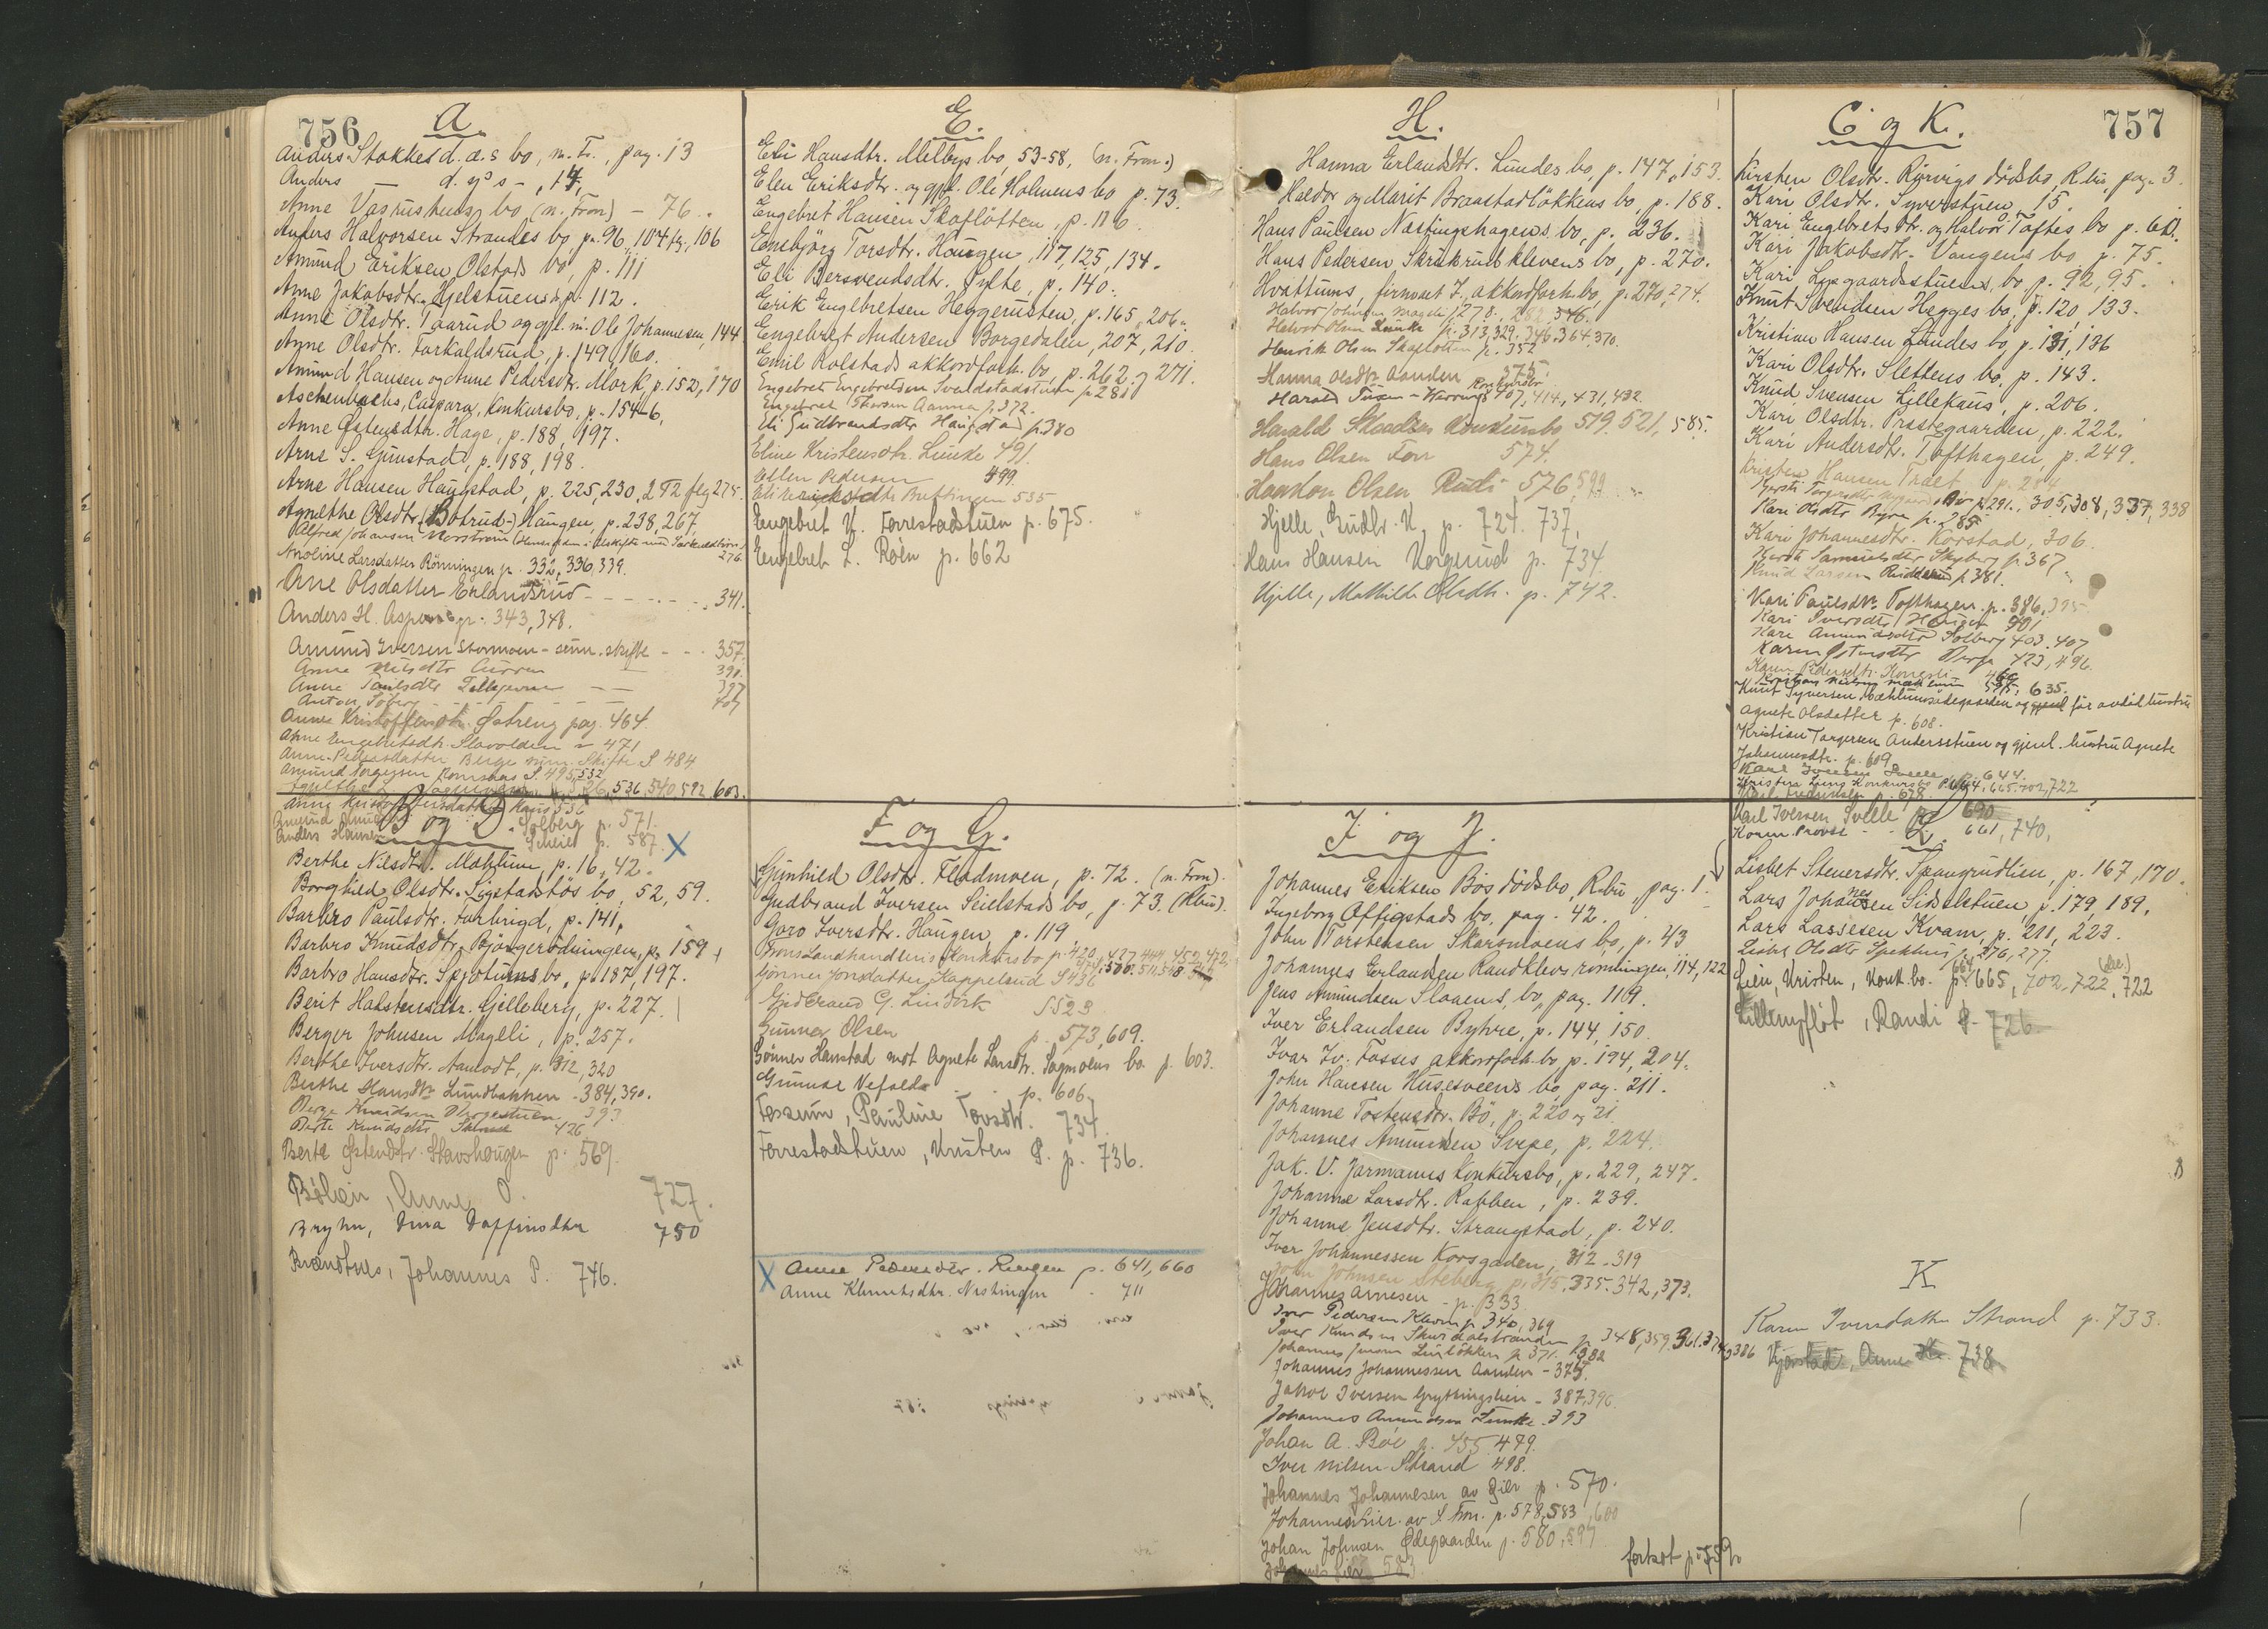 756
A.
Anders Stokkes d.æ.s bo, n. Fr., pag. 13
Anders — d. y.s — „ 14,
Anne Vasrusthus bo (n. Fron) — 76.
Anders Halvorsen Strandes bo p. 96, 104 fg., 106
Amund Eriksen Olstads bo, p. 111
Anne Jakobsdtr. Hjelstuens p. 112.
Anne Olsdtr. Taarud og gjl. m. Ole Johannesen, 144
Anne Olsdtr. Torkaldsrud, p. 149, 160.
Amund Hansen og Anne Pedersdtr. Mork, p. 152, 170
Aschenbachs, Caspara, konkursbo, p. 154-6,
Anne Østensdtr. Hage, p. 188, 197.
Arne S. Grimstad, p. 188, 198.
Arne Hansen Haugstad, p. 225, 230, 272 flg 275.
Agnethe Olsdtr. (Botrud-) Haugen, p. 238, 267,
Alfred Johansen Norstrøm 276.
Anoline Larsdatter Rønningen p. 332, 336, 339.
Ane Olsdatter Erlandsrud - - - - - - 341.
Anders H. Aspen p. 343, 348.
Amund Iversen Stormoen - saml. skifte - - - 357.
Anne Nilsdtr 390.
Anne Paulsdtr — — 397
Anton Soberg
Anne Kristoffersdtr. Østreng pag. 464.
Ane Engebretsdtr. Slaavolden - 471
Anne Pedersdatter Berge saml. Skifte S 484
Amund Torgersen S. 495, 532
536, 540, 592, 603.
B og D.
Amund Solberg p. 571.
Anders Hansen p. 587. X
Berthe Nilsdtr. Mæhlum, p. 16, 42.
Borghild Olsdtr. Sigstadstøs bo, 52, 59.
Barbro Paulsdtr. Forbrigd, p. 141,
Barbro Knudsdtr. p. 159
Barbro Hansdtr. bo, p. 187, 197.
Berit Halstensdtr. Gilleberg, p. 227.
Berger Johnsen Magelli, p. 257.
Berthe Iversdtr. Aanlodt, p. 312, 320
Berthe Hansdtr Lundbakken - 384, 390.
393
Berte Knudsdtr 426
Berte Østensdtr. Stavshaugen p. 569.
Bølien, Anne O. 727.
Bryhn, Dina Daffinsdtr 750
Brændtnes, Johannes P. 746.
E.
Eli Hansdtr. Melbys bo, 53-58, (n. Fron.)
Elen Eriksdtr. og gjl. Ole Holmens bo p. 73.
Engebret Hansen Skaflotten, p. 116.
Engebjørg Torsdtr. Haugen, 117, 125, 134.
Eli Bersvendsdtr. Sylte, p. 140.
Erik Englbretsen Heggerusten, p. 165, 206.
Engebret Andersen Borgedalen, 207, 210.
Emil Rolstads akkordforh. bo, p. 262 og 271.
Engebret Engebretsen Svaldstadstuen p. 281
Engebret Thoresen Aanna p. 372.
Eli Gudbrandsdtr Haugstad p. 380
Eline Kristensdtr. Linke 491.
Ellen Pedersen 499.
Eli Eriksdtr Bruttingen 535
Engebret K. Forrestadstuen p. 675.
Engebret L. Røen p. 662
F og G.
Gunhild Olsdtr. Flodmoen, p. 72. (n. Fron).
Gudbrand Iversen Seielstads bo, p. 73. (Rbu).
Goro Iversdtr. Haugen, p. 119
Frons Landhandleris Konkursbo p. 420, 427, 444, 452, 472,
Gjønner Jonsdatter Kappelsud S 436
Gudbrand G. Lindork S 523
Gunner Olsen p. 573, 609.
Gønner Hanstad mot Agnete Larsdtr. Sagmoens bo p. 603.
Gunnar Nefalds p. 606.
Fossum, Pauline Tovsdtr. 734.
Forrestadstuen, Kristen P. p. 736.
X Anne Pedersdtr. Ringen p. 641, 660
Anne Klemetsdtr. Nistingen - 711
H.
Hanna Erlandsdtr. Lundes bo, p. 147, 153.
Haldor og Marit Braastadløkkens bo, p. 188.
Hans Paulsen Næstingshagens bo, p. 236.
Hans Pedersen Skrukrudklevens bo, p. 270.
Hvattums, firmaet I., akkordforh. bo, p. 270, 274.
Halvor Johnsen Magelli 278, 282, 346.
Halvor Olsen Linke p. 313, 329, 346, 364, 370.
Henrik Olsen Skaflotten p. 352
Hanna Olsdtr Aanden 375.
Harald Konkursbo 407, 414, 431, 432.
Harald Konkursbo 519. 521, 585.
Hans Olsen Forr 574.
Haakon Olsen Rudi 576, 599
Hjelle, Gudbr. K. p. 724. 737,
Hans Hansen Vorgerud p. 734.
Hjelle, Mathilde Olsdtr. p. 742.
I og J.
Johannes Eriksen Bøs dødsbo, R.bu, pag. 1.
Ingeborg Offigstads bo. pag. 42.
John Torstensen Skarsmoens bo, p. 43
Johannes Erlandsen Randklevsrønningen, 114, 122
Jens Amundsen Slaaens bo, pag. 119.
Iver Erlandsen Byhre, p. 144, 150.
Ivar Iv. Fosses akkordforh. bo p. 194, 204.
John Hansen Husesveens bo, pag. 211.
Johanne Tostensdtr. Bø, p. 220 og 21.
Johannes Amundsen Svepe, p. 224.
Jak. V. Jarmanns konkursbo, p. 229, 247.
Johanne Larsdtr. Rabben, p. 239.
Johanne Jensdtr. Strangstad, p. 240.
Iver Johannessen Korsgaden, 312. 319
John Johnsen Steberg p. 315, 335. 342, 373.
Johannes Arnesen - p. 333.
Iver Pedersen Kleven p. 340, 369
Iver Knudsen Skurdalstranden p. 348, 359. 361. 374, 386
Johannes Linløkken p. 371. 382
Johannes Johannessen Aanden - 375.
Jakob Iversen Grythingslien - 387, 390.
Johannes Amundsen Linke. 393
Johan A. Bøe p. 455 479.
Iver Nilsen Strand 498.
Johannes Johannesen av Lier p. 570.
Johannes Lier av S. Fron. p. 578, 583, 600
Johan Johnsen Ødegaarden p. 580, 597
Johannes Lier 583
fortsat p. 759
C og K.
757
Kirsten Olsdtr. Rørvigs dødsbo, R.bu, pag. 3.
Kari Olsdtr. Syverstuen, 15.
Kari Englbretsdtr. og Halvor Toftes bo p. 60.
Kari Jakobsdtr. Vangens bo p. 75.
Kari Losgaardsstuens bo p. 92, 95.
Knut Svendsen Hegges bo, p. 120, 133.
Kristian Hansen Lundes bo, p. 131, 136
Kari Olsdtr. Slettens bo, p. 143.
Knud Svensen Lillehaus, p. 206.
Kari Olsdtr. Prestegaarden, p. 222.
Kari Andersdtr. Tofthagen, p. 249.
Kristen Hansen
p. 291., 305, 308, 337, 338
Kari Olsdtr Byre p. 285
Kari Johannesdtr. Korstad, 306.
Samuelsdtr Skyberg p. 367
Knud Larsen p. 381.
Kari Paulsdtr. Tofthagen. p. 386, 395
Kari Iversdtr Haugen 401
Kari Amundsdtr Solberg 403. 407
Karen Østensdtr Berge 423, 496.
Karen Pedersdtr.
635.
Knut Syversen Mæhlumsødegaarden og gjenl. før avdøde hustru
Agnete Olsdatter p. 608.
Kristian Torgersen Anderstuen og gjenl. hustru Agnete
Johannesdtr. p. 609
Karl Iversen Svelle 644.
Kristen Liens Konkursbo p. 664, 665, 702, 722
p. 678.
Karl Iversen Svelle p. 690
Karen Provst - - 661, 740,
L.
Lisbet Stenersdtr. Spangrudlien, p. 167, 170.
Lars Johannesen Sidselstuen, p. 179, 189.
Lars Lassesen Kvam, p. 211, 223.
Lisbet Olsdtr p. 276, 277.
Lien, Kristen, konk.bo. p. 664 665, 702, 722, 722
Lillemyfløt, Randi P. 726
K
Karen Iversdatter Strand p. 733.
Kjorstad, Anne 738